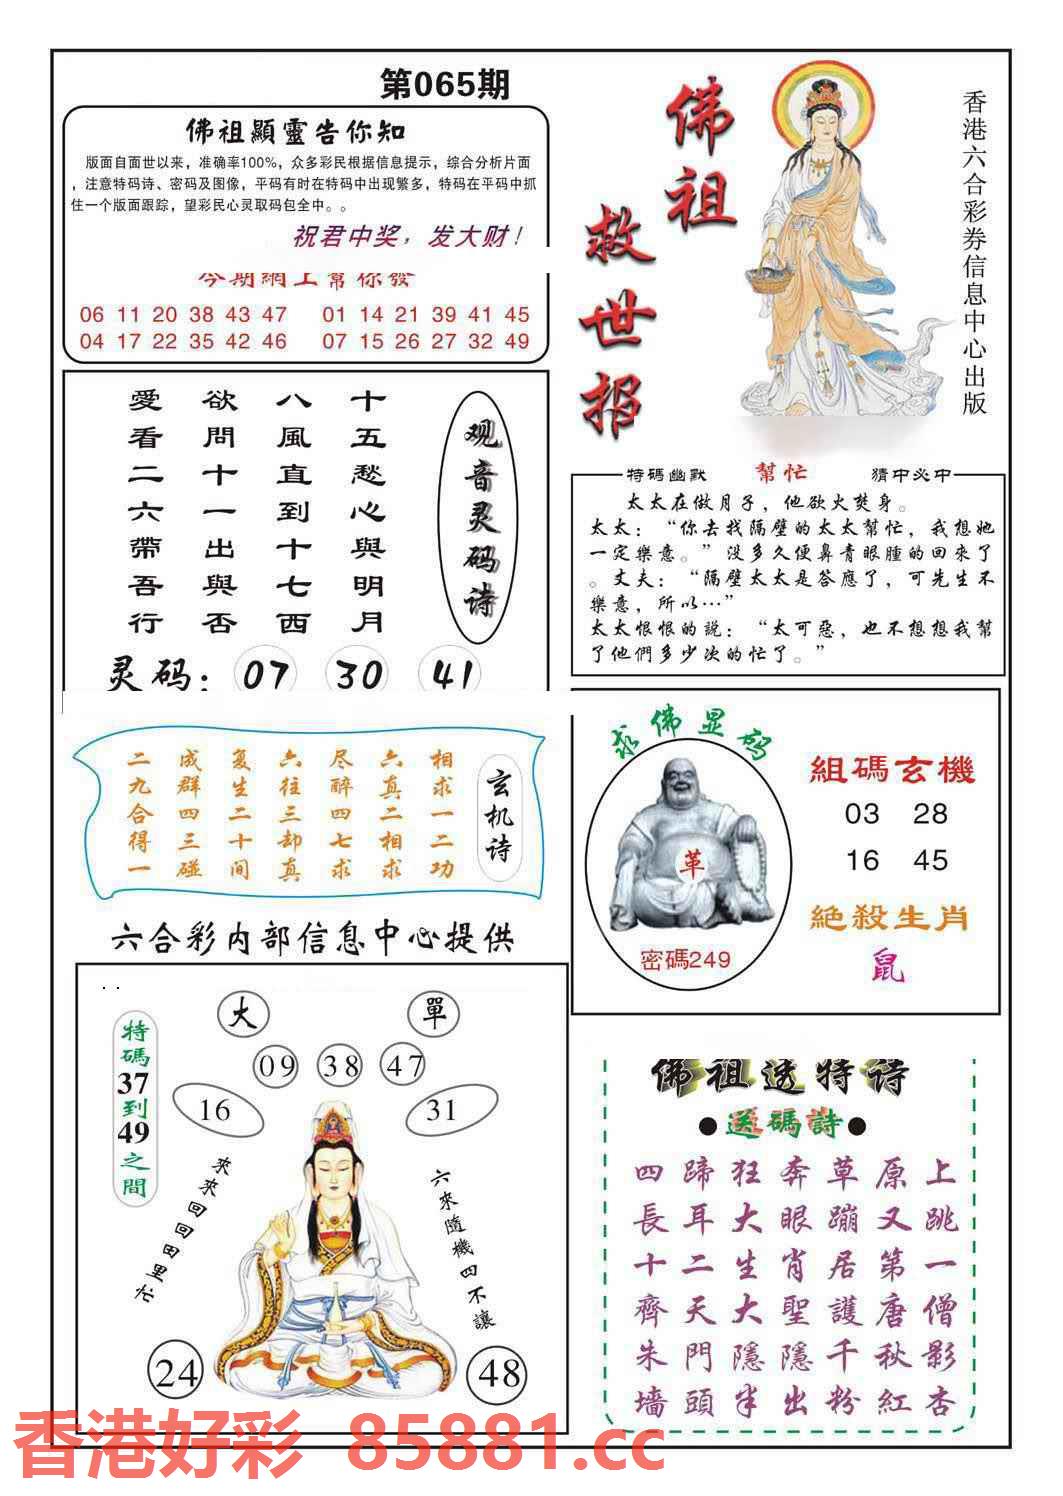 第065期
佛祖顯靈告你知
版面自面世以来，准确率100%，众多彩民根据信息提示，综合分析片面
，注意特码诗、密码及图像，平码有时在特码中出现繁多，特码在平码中抓
住一个版面跟踪，望彩民心灵取码包全中。。
祝君中奖，发大财！
今期網上幫你發
06 11 20 38 43 47 01 14 21 39 41 45
04 17 22 35 42 46 07 15 26 27 32 49
佛祖
救世报
香港六合彩券信息中心出版
观音灵码诗
十五愁心與明月
八風直到十七西
欲問十一出與否
愛看二六帶吾行
灵码：07 30 41
特碼幽默 幫忙 猜中必中
太太在做月子，他欲火焚身。
太太：“你去找隔壁的太太幫忙，我想她
一定樂意。”没多久便鼻青眼腫的回來了
。丈夫：“隔壁太太是答應了，可先生不
樂意，所以…”
太太恨恨的説：“太可惡，也不想想我幫
了他們多少次的忙了。”
玄机诗
相求一二功
六真二相求
尽醉四七求
六往三却真
复生二十间
成群四三碰
二九合得一
求佛显码
革
密碼249
組碼玄機
03 28
16 45
絕殺生肖
鼠
六合彩内部信息中心提供
大 單
09 38 47
16 31
特碼37到49之間
來來回回田里忙
六來隨機四不讓
24 48
佛祖透特诗
●送碼詩●
四蹄狂奔草原上
長耳大眼蹦又跳
十二生肖居第一
齊天大聖護唐僧
朱門隱隱千秋影
墙頭半出粉紅杏
香港好彩 85881.cc